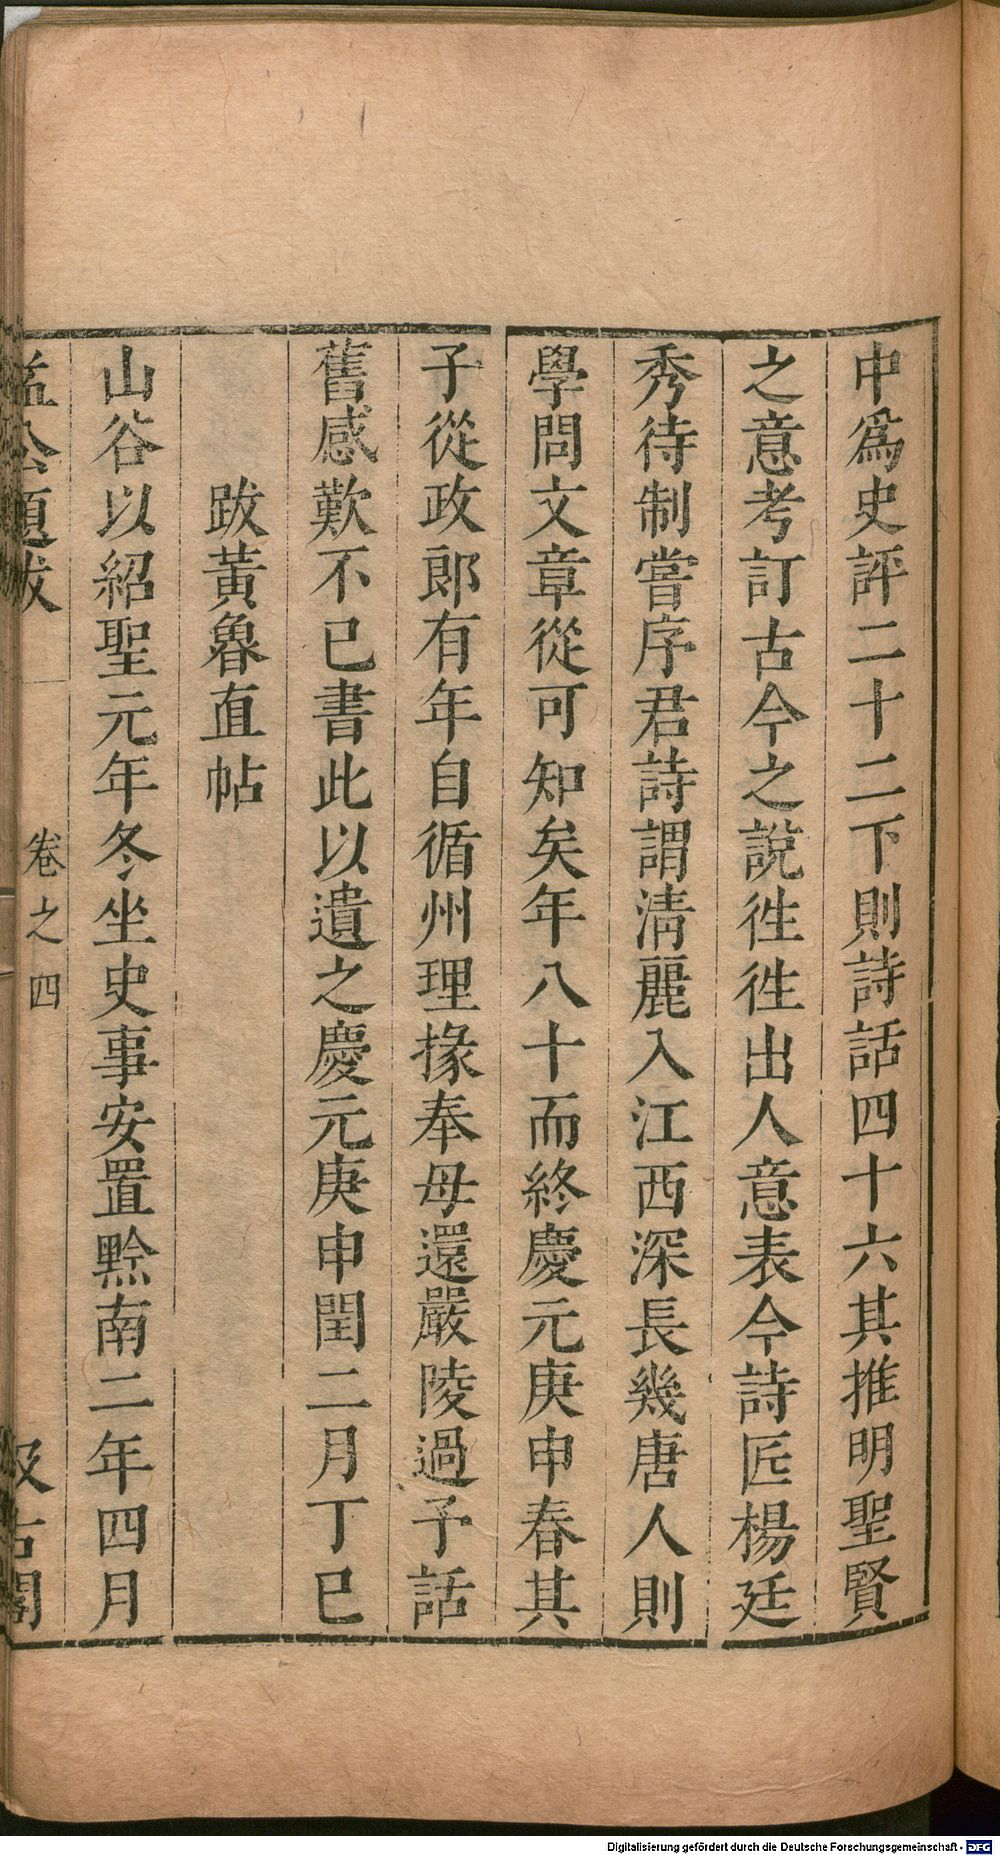 中爲史評二十二下則詩話四十六其推明聖賢
之意考訂古今之說徃徃出人意表今詩匠楊廷
秀待制嘗序君詩謂淸麗入江西深長幾唐人則
學問文章從可知矣年八十而終慶元庚申春其
子從政郎有年自循州理掾奉母還嚴陵過予話
舊感歎不已書此以遺之慶元庚申閏二月丁巳
跋黃魯直帖
山谷以紹聖元年冬坐史事安置黔南二年四月
益公題跋
卷之四
汲古閣
Digitalisierung gefördert durch die Deutsche Forschungsgemeinschaft - DFG